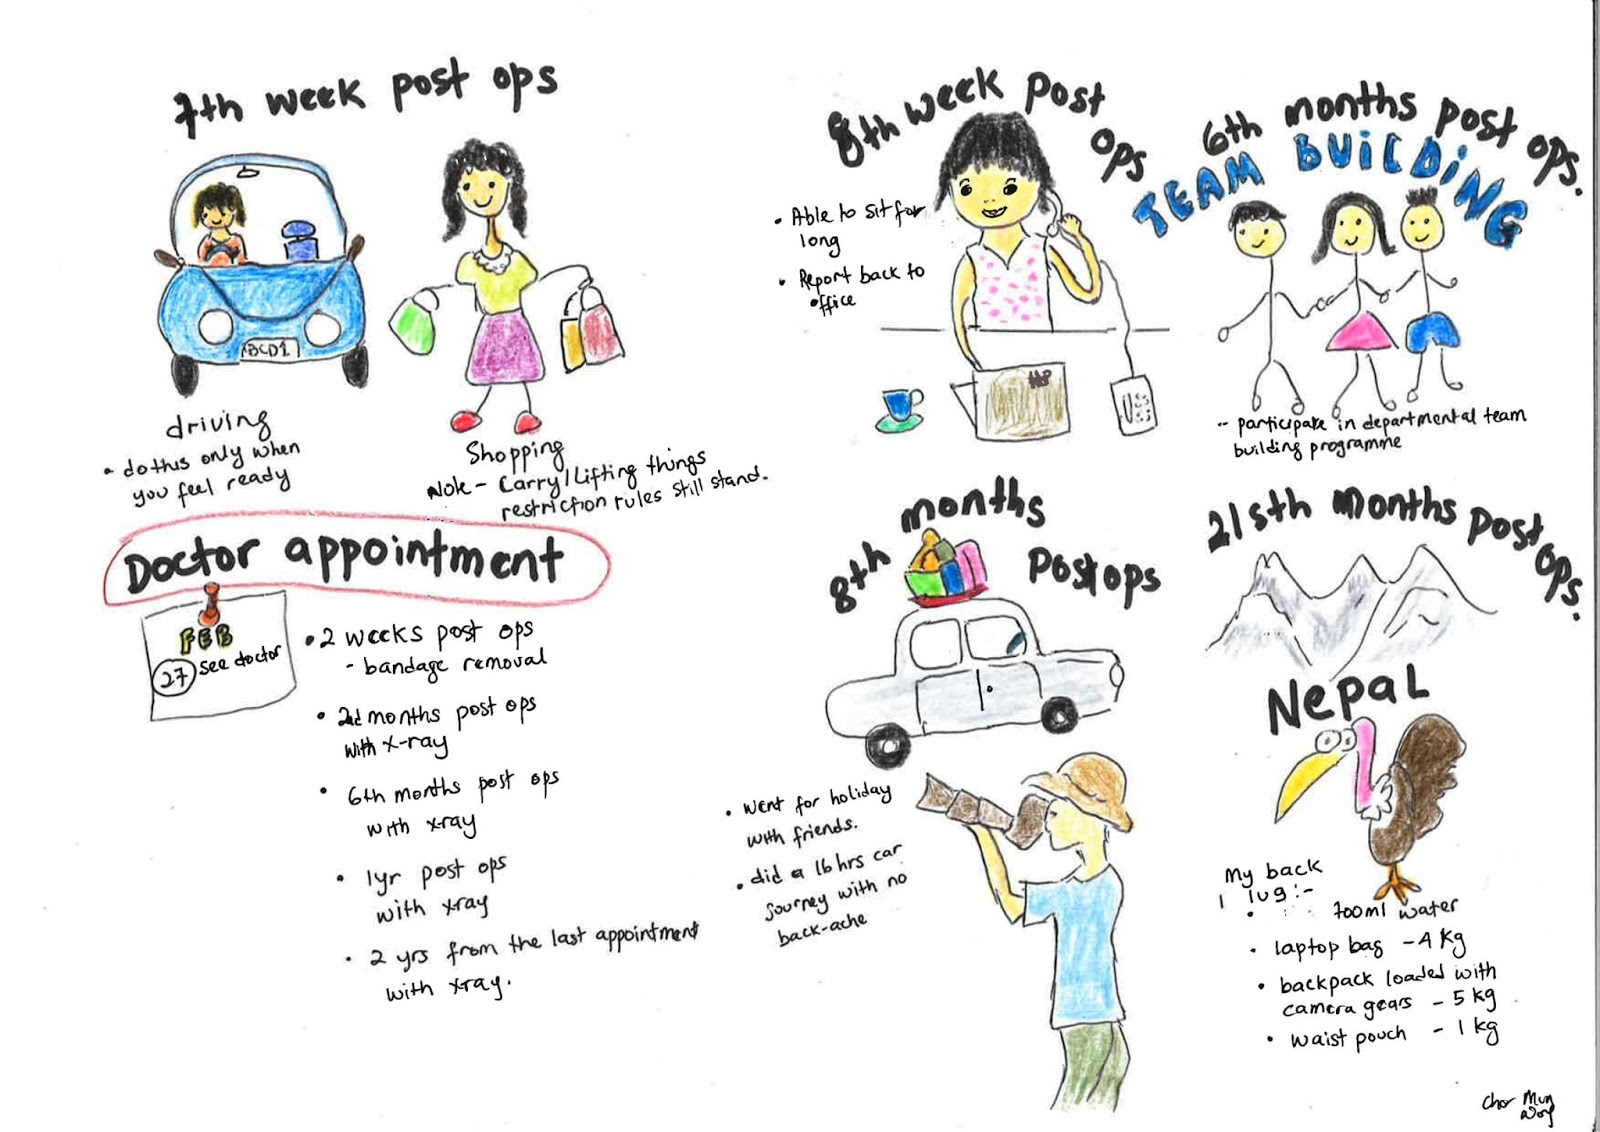 7th week post ops
ABCD1
driving
- do this only when
you feel ready
Shopping
Note - Carry/Lifting things
restriction rules still stand.
Doctor appointment
FEB
27 see doctor
• 2 weeks post ops
- bandage removal
• 2nd months post ops
with x-ray
• 6th months post ops
with xray
• 1yr post ops
with xray
• 2 yrs from the last appointment
with xray.
8th week post ops
• Able to sit for
long
• Report back to
office
HP
6th months post ops.
TEAM BUiLDiNG
-- participate in departmental team
building programme
8th months post ops
• went for holiday
with friends.
• did a 16 hrs car
journey with no
back-ache
21sth months post ops.
Nepal
My back
I lug :-
• 700ml water
• laptop bag - 4 kg
• backpack loaded with
camera gears - 5 kg
• waist pouch - 1 kg
Chor Mun